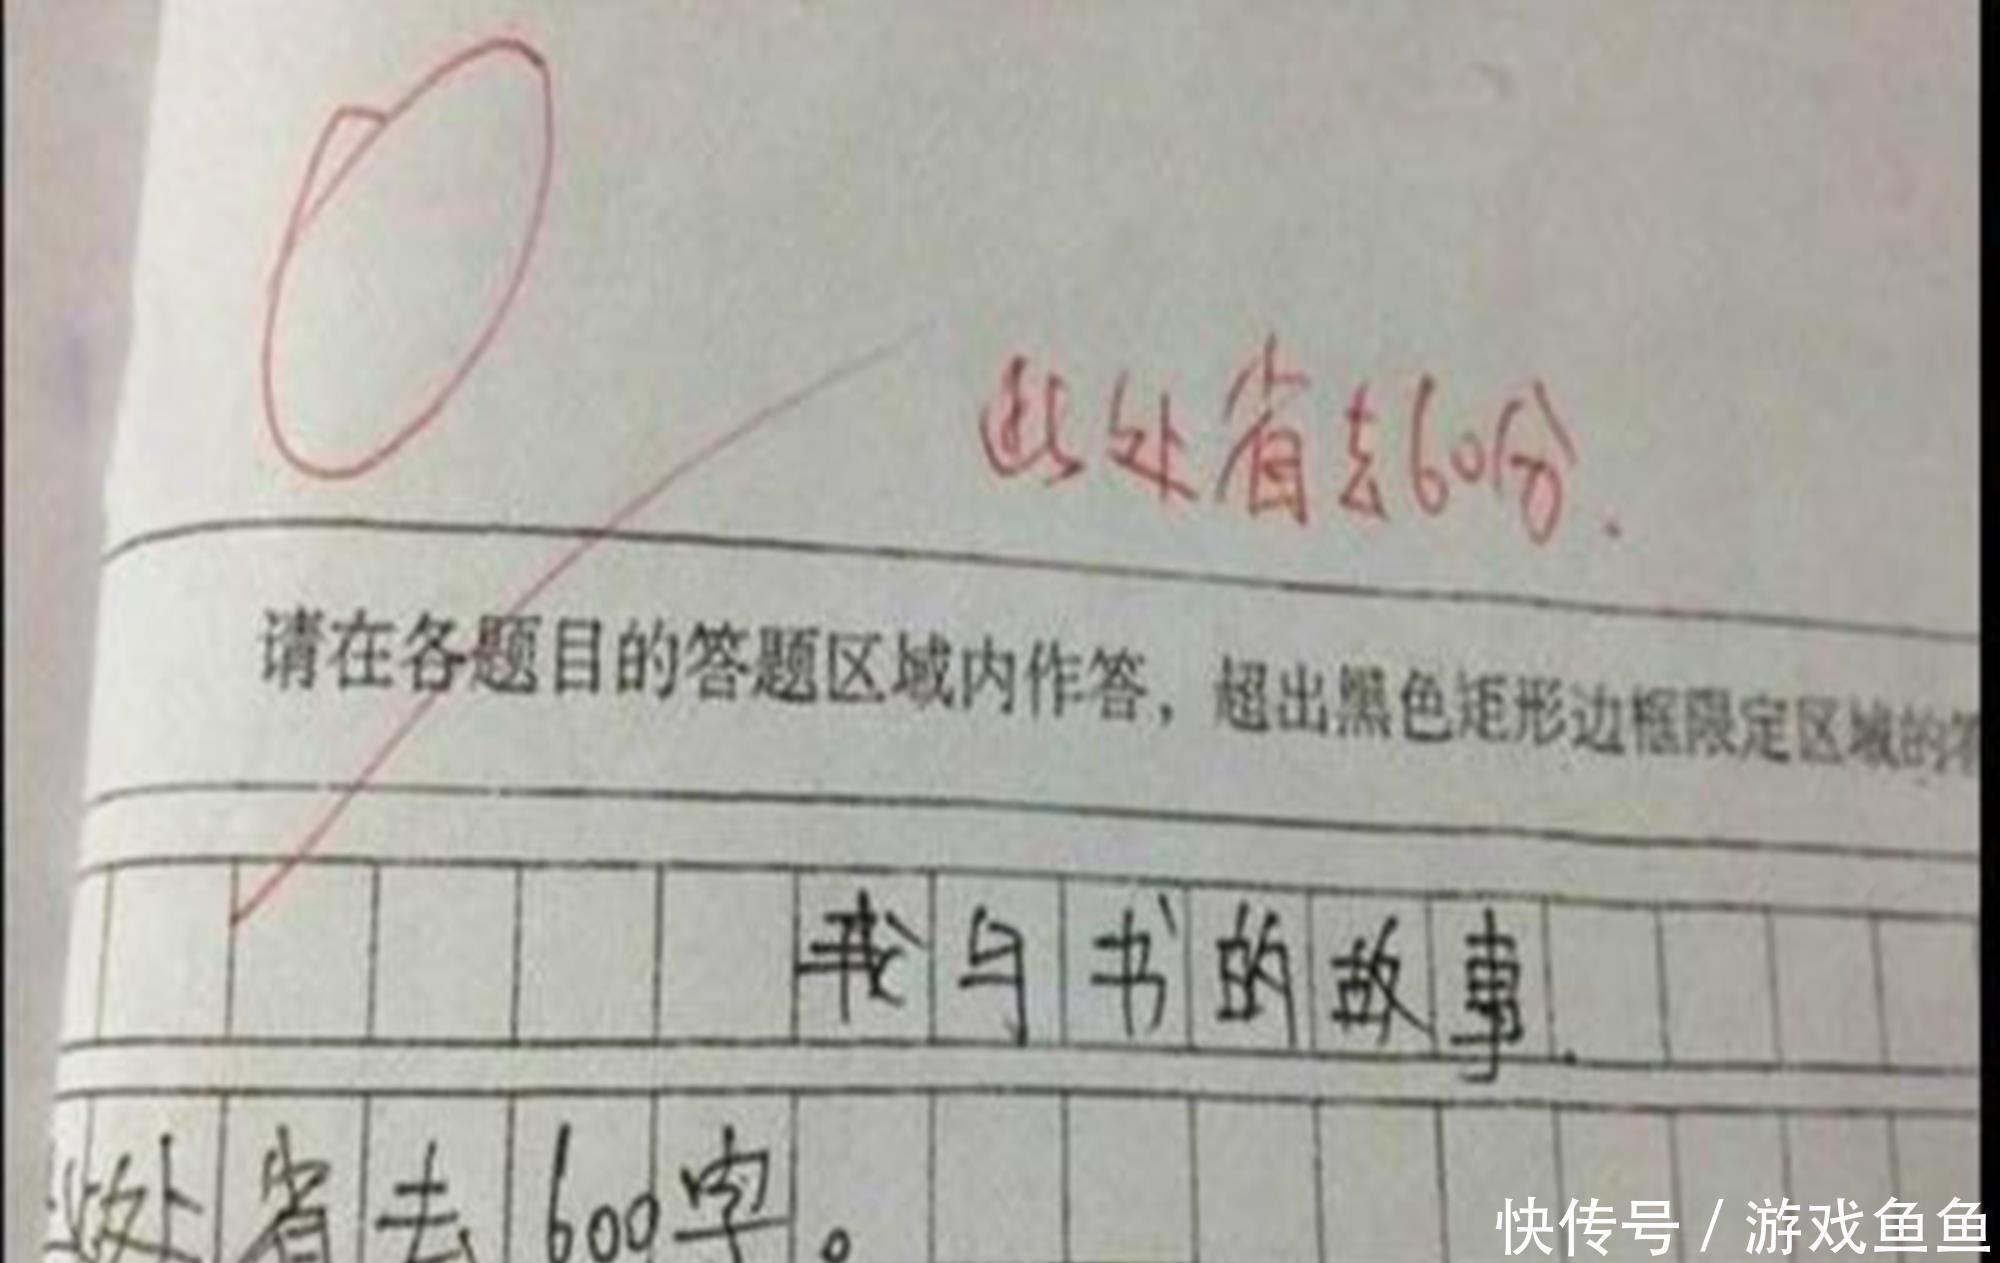 此处省去60分.
请在各题目的答题区域内作答，超出黑色矩形边框限定区域的答
我与书的故事.
此处省去600字。
快传号 / 游戏鱼鱼